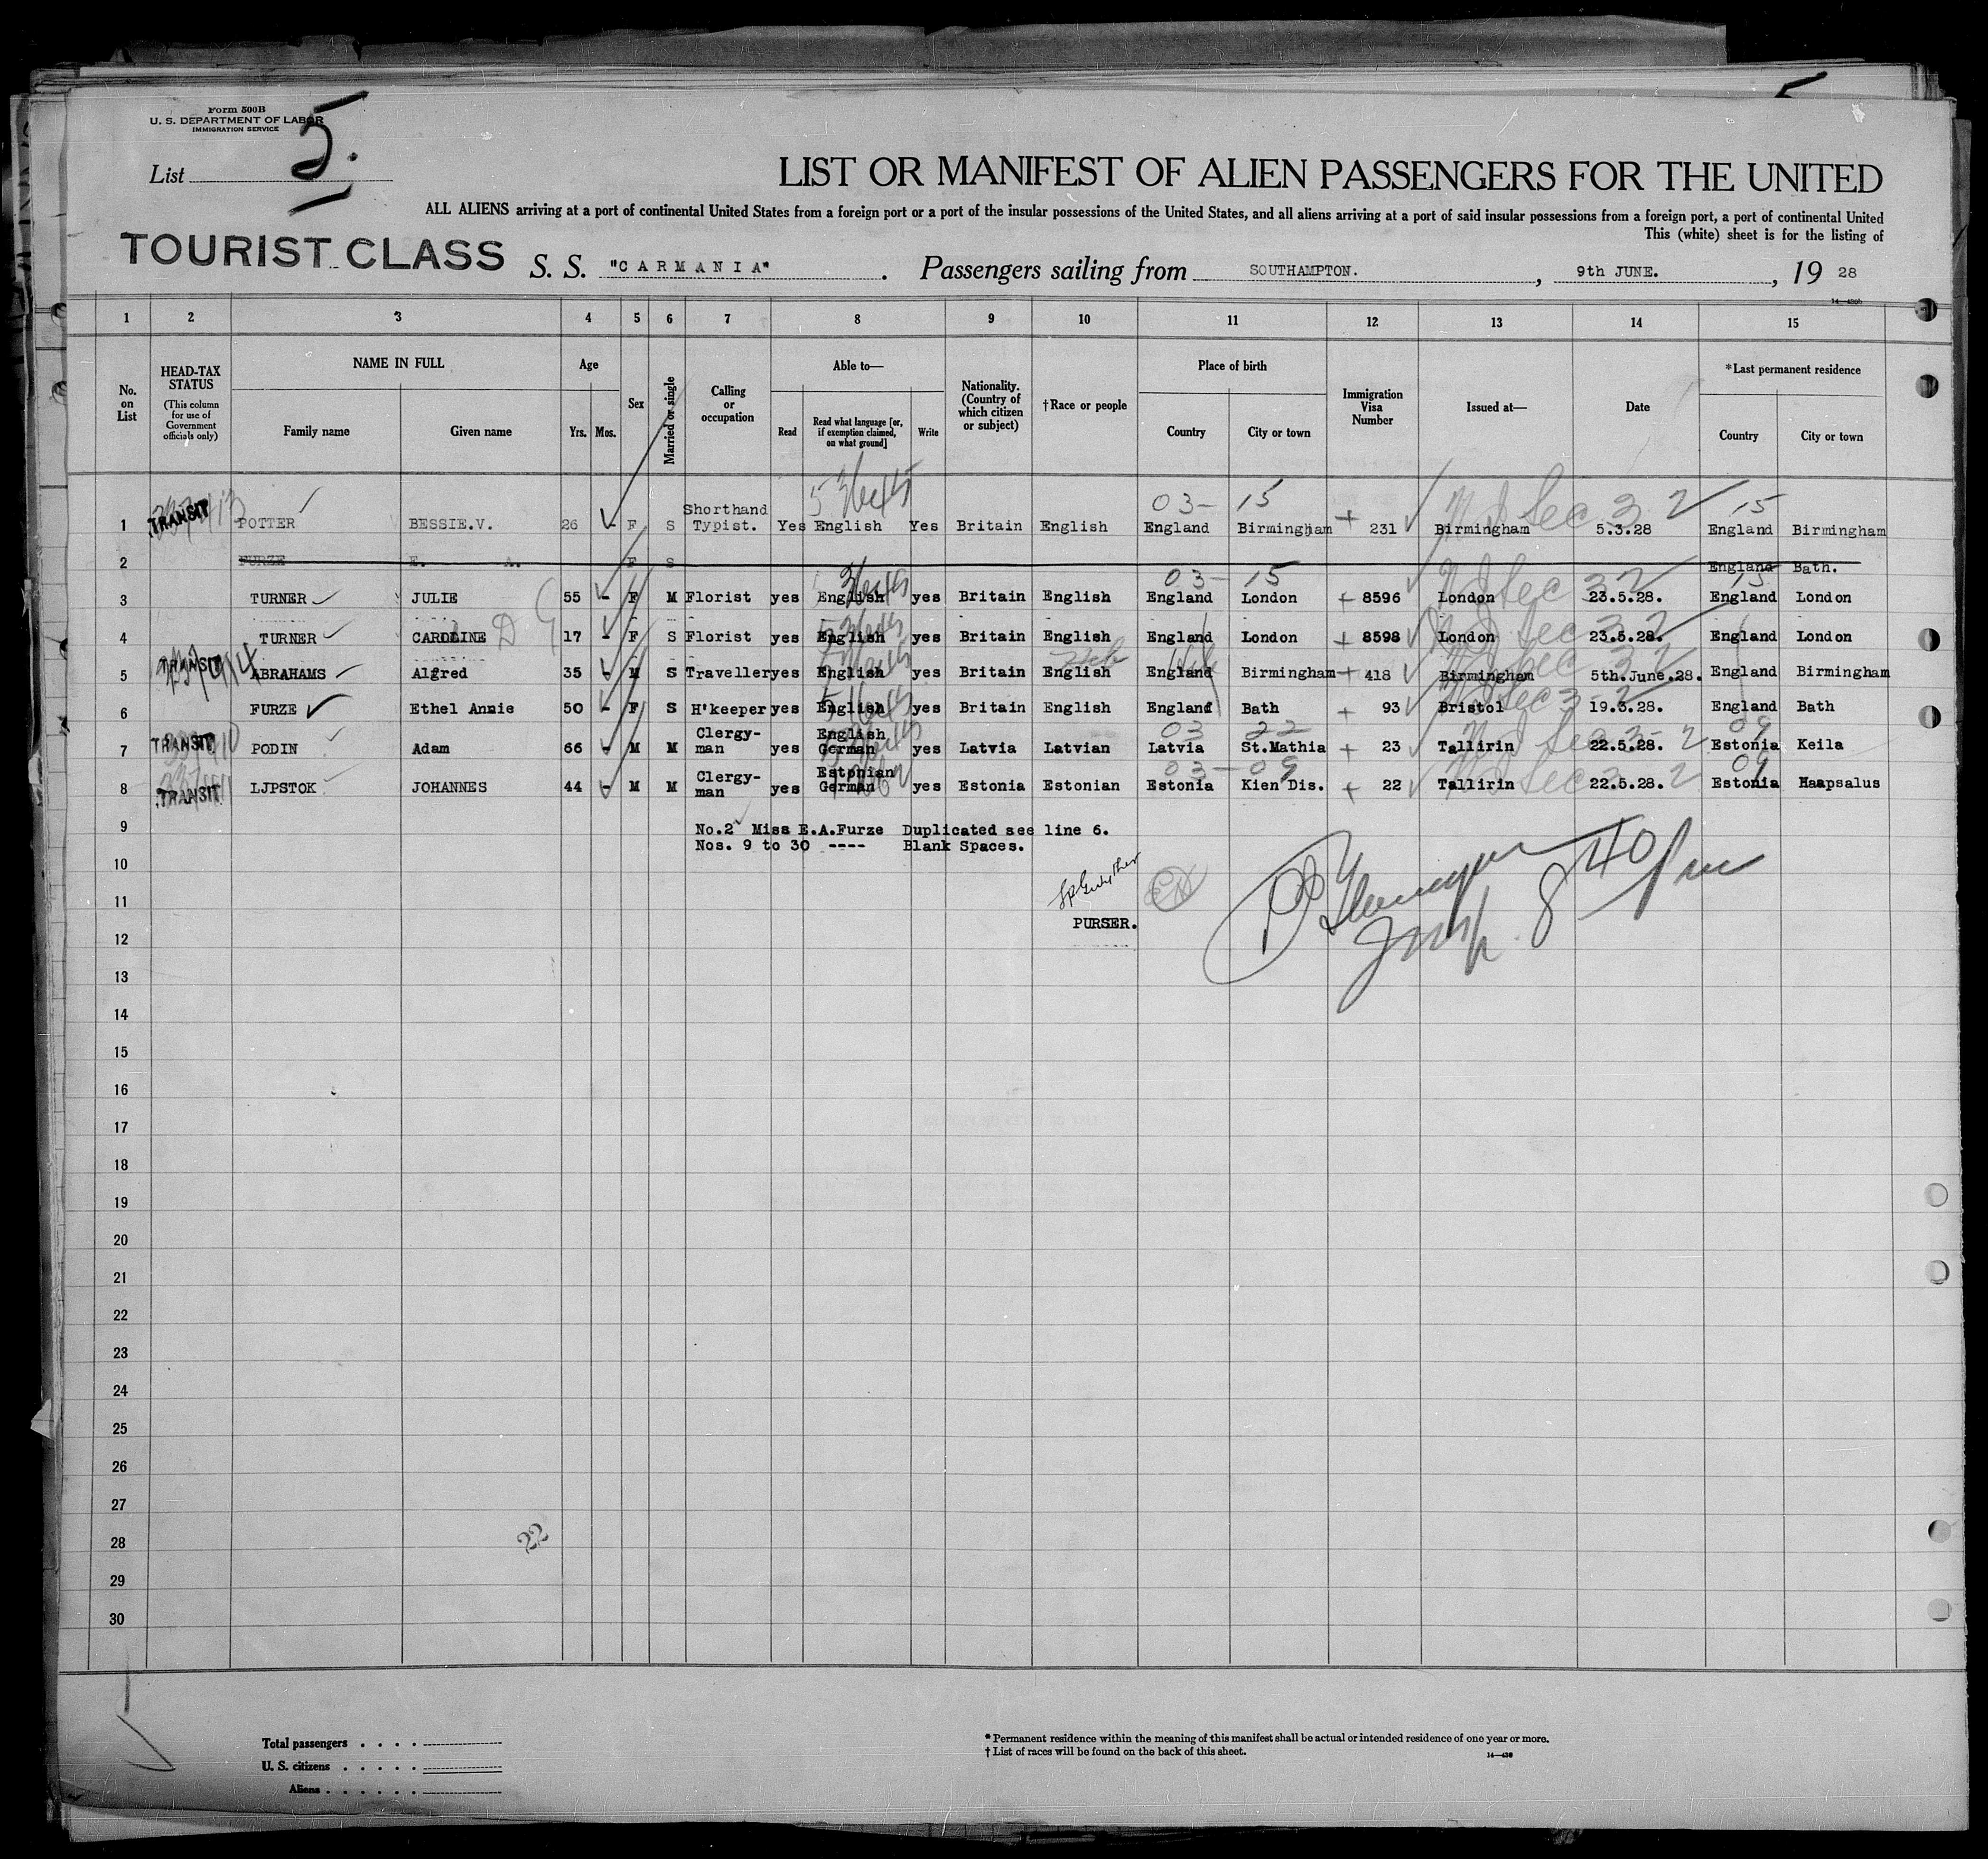 Form 500B
U. S. DEPARTMENT OF LABOR
IMMIGRATION SERVICE
List 5.
LIST OR MANIFEST OF ALIEN PASSENGERS FOR THE UNITED
ALL ALIENS arriving at a port of continental United States from a foreign port or a port of the insular possessions of the United States, and all aliens arriving at a port of said insular possessions from a foreign port, a port of continental United
This (white) sheet is for the listing of
TOURIST CLASS S. S. "CARMANIA". Passengers sailing from SOUTHAMPTON., 9th JUNE., 19 28
14—430b
1 2 3 4 5 6 7 8 9 10 11 12 13 14 15
No. on List
HEAD-TAX STATUS (This column for use of Government officials only)
NAME IN FULL
Family name Given name
Age
Yrs. Mos.
Sex
Married or single
Calling or occupation
Able to—
Read Read what language [or, if exemption claimed, on what ground] Write
Nationality. (Country of which citizen or subject)
†Race or people
Place of birth
Country City or town
Immigration Visa Number
Issued at—
Date
*Last permanent residence
Country City or town
03- 15 15
1 TRANSIT POTTER BESSIE.V. 26 - F S Shorthand Typist. Yes English Yes Britain English England Birmingham 231 Birmingham 5.3.28 England Birmingham
2 FURZE E. A. F S England Bath.
03- 15 15
3 TURNER JULIE 55 - F M Florist yes English yes Britain English England London 8596 London 23.5.28. England London
4 TURNER CAROLINE D 17 - F S Florist yes English yes Britain English England London 8598 London 23.5.28. England London
5 TRANSIT ABRAHAMS Alfred 35 - M S Traveller yes English yes Britain English England Birmingham 418 Birmingham 5th.June.28. England Birmingham
6 FURZE Ethel Annie 50 - F S H'keeper yes English yes Britain English England Bath 93 Bristol 19.3.28. England Bath
03 22 09
7 TRANSIT PODIN Adam 66 - M M Clergy-man yes English German yes Latvia Latvian Latvia St.Mathia 23 Tallirin 22.5.28. Estonia Keila
03-09 09
8 TRANSIT LJPSTOK JOHANNES 44 - M M Clergy-man yes Estonian German yes Estonia Estonian Estonia Kien Dis. 22 Tallirin 22.5.28. Estonia Haapsalus
9 No.2 Miss E.A.Furze Duplicated see line 6.
Nos. 9 to 30 ---- Blank Spaces.
10
11
PURSER.
Insp. 8 40 pm
12
13
14
15
16
17
18
19
20
21
22
23
24
25
26
27
28
22
29
30
Total passengers . . . .
U. S. citizens . . . . .
Aliens . . . . . .
* Permanent residence within the meaning of this manifest shall be actual or intended residence of one year or more.
† List of races will be found on the back of this sheet.
14—430